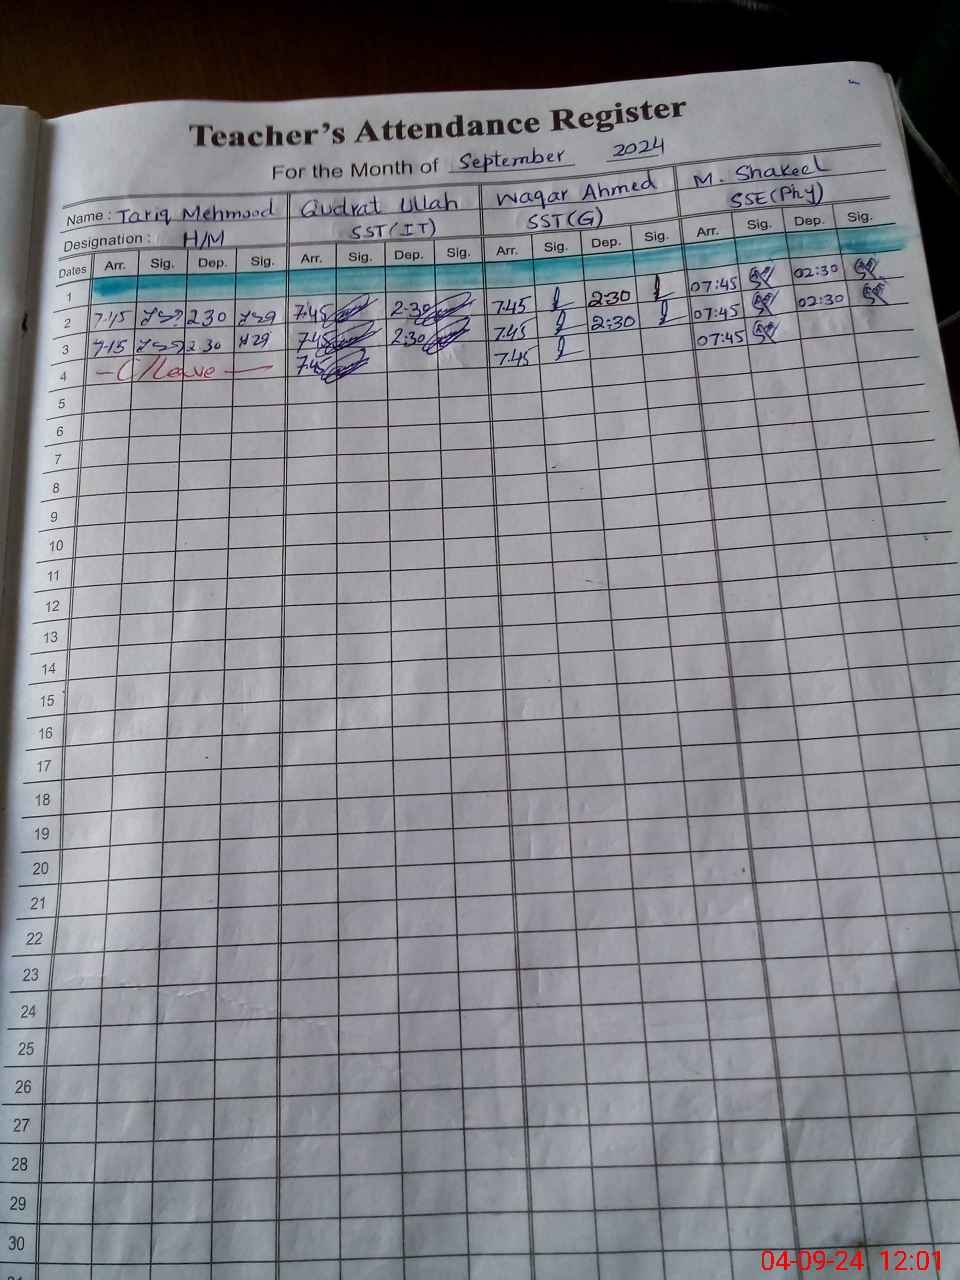 Teacher's Attendance Register
For the Month of September 2024
Name: Tariq Mehmood Qudrat Ullah Waqar Ahmed M. Shakeel
Designation: H/M SST(IT) SST(G) SSE(Phy)
Dates Arr. Sig. Dep. Sig. Arr. Sig. Dep. Sig. Arr. Sig. Dep. Sig. Arr. Sig. Dep. Sig.
1
2 7:15 2 30 7:45 2:30 7:45 2:30 07:45 02:30
3 7:15 2 30 7:45 2:30 7:45 2:30 07:45 02:30
4 C/Leave 7:45 7:45 07:45
5
6
7
8
9
10
11
12
13
14
15
16
17
18
19
20
21
22
23
24
25
26
27
28
29
30
04-09-24 12:01